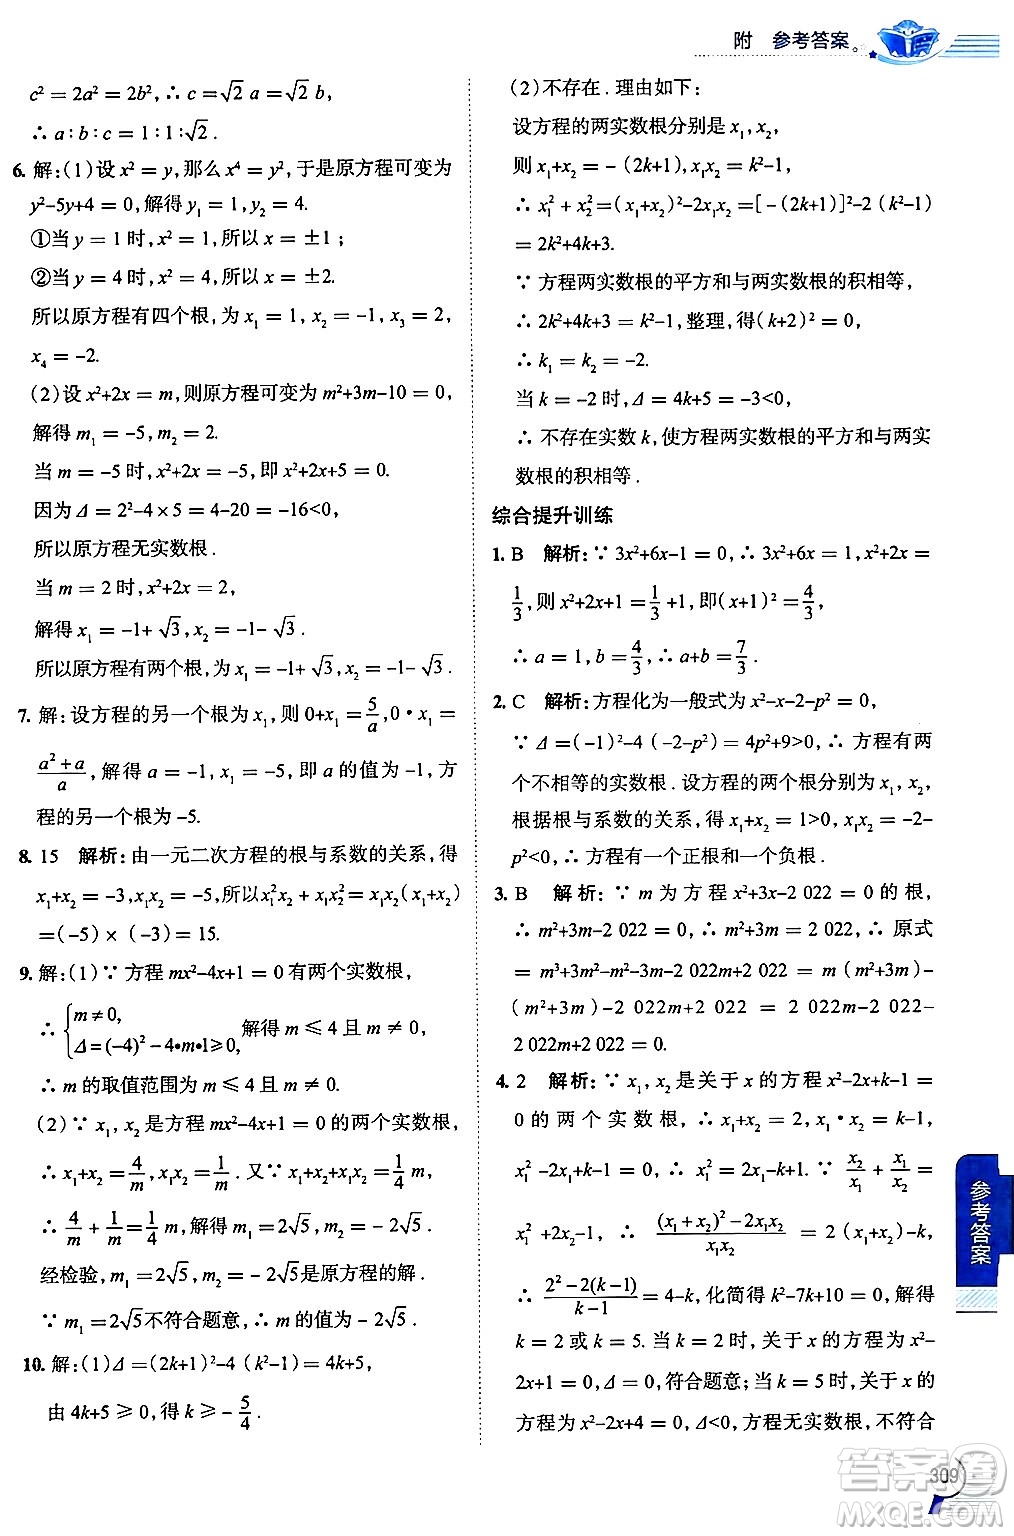 附　参考答案
c²＝2a²＝2b²,∴ c＝√2 a＝√2 b,
∴ a∶b∶c＝1∶1∶√2.
6. 解:(1)设 x²＝y,那么 x⁴＝y²,于是原方程可变为
y²-5y+4＝0,解得 y₁＝1,y₂＝4.
①当 y＝1 时,x²＝1,所以 x＝±1；
②当 y＝4 时,x²＝4,所以 x＝±2.
所以原方程有四个根,为 x₁＝1, x₂＝-1, x₃＝2,
x₄＝-2.
(2)设 x²+2x＝m,则原方程可变为 m²+3m-10＝0,
解得 m₁＝-5,m₂＝2.
当 m＝-5 时,x²+2x＝-5,即 x²+2x+5＝0.
因为 Δ＝2²-4×5＝4-20＝-16<0,
所以原方程无实数根.
当 m＝2 时,x²+2x＝2,
解得 x₁＝-1+√3,x₂＝-1-√3.
所以原方程有两个根,为 x₁＝-1+√3,x₂＝-1-√3.
7. 解:设方程的另一个根为 x₁,则 0+x₁＝5/a,0·x₁＝
(a²+a)/a,解得 a＝-1,x₁＝-5,即 a 的值为-1,方
程的另一个根为-5.
8. 15　解析:由一元二次方程的根与系数的关系,得
x₁+x₂＝-3,x₁x₂＝-5,所以x₁²x₂+x₁x₂²＝x₁x₂(x₁+x₂)
＝(-5)×(-3)＝15.
9. 解:(1)∵ 方程 mx²-4x+1＝0 有两个实数根,
∴ {m≠0, Δ＝(-4)²-4•m•1≥0, 解得 m≤4 且 m≠0.
∴ m 的取值范围为 m≤4 且 m≠0.
(2)∵ x₁,x₂是方程 mx²-4x+1＝0 的两个实数根,
∴ x₁+x₂＝4/m,x₁x₂＝1/m.又∵ 1/x₁+1/x₂＝1/4 m,
∴ 4/m÷1/m＝1/4 m,解得 m＝2√5 或 m＝-2√5.
经检验,m₁＝2√5,m₂＝-2√5是原方程的解.
∵ m₁＝2√5不符合题意,∴ m 的值为-2√5.
10. 解:(1)Δ＝(2k+1)²-4(k²-1)＝4k+5,
由 4k+5≥0,得 k≥-5/4.
(2)不存在.理由如下:
设方程的两实数根分别是 x₁,x₂,
则 x₁+x₂＝-(2k+1),x₁x₂＝k²-1,
∴ x₁²+x₂²＝(x₁+x₂)²-2x₁x₂＝[-(2k+1)]²-2(k²-1)
＝2k²+4k+3.
∵ 方程两实数根的平方和与两实数根的积相等,
∴ 2k²+4k+3＝k²-1,整理,得(k+2)²＝0,
∴ k₁＝k₂＝-2.
当 k＝-2 时,Δ＝4k+5＝-3<0,
∴ 不存在实数 k,使方程两实数根的平方和与两实
数根的积相等.
综合提升训练
1. B　解析:∵ 3x²+6x-1＝0,∴ 3x²+6x＝1,x²+2x＝
1/3,则 x²+2x+1＝1/3+1,即(x+1)²＝4/3,
∴ a＝1,b＝4/3,∴ a+b＝7/3.
2. C　解析:方程化为一般式为 x²-x-2-p²＝0,
∵ Δ＝(-1)²-4(-2-p²)＝4p²+9>0,∴ 方程有两
个不相等的实数根.设方程的两个根分别为 x₁,x₂,
根据根与系数的关系,得 x₁+x₂＝1>0,x₁x₂＝-2-
p²<0,∴ 方程有一个正根和一个负根.
3. B　解析:∵ m 为方程 x²+3x-2 022＝0 的根,
∴ m²+3m-2 022＝0,∴ m²+3m＝2 022,∴ 原式
＝m³+3m²-m²-3m-2 022m+2 022＝m(m²+3m)-
(m²+3m)-2 022m+2 022＝2 022m-2 022-
2 022m+2 022＝0.
4. 2　解析:∵ x₁,x₂是关于 x 的方程x²-2x+k-1＝
0 的两个实数根,∴ x₁+x₂＝2,x₁•x₂＝k-1,
x₁²-2x₁+k-1＝0,∴ x₁²＝2x₁-k+1.∵ x₂/x₁+x₁/x₂＝
x₁²+2x₂-k,∴ ((x₁+x₂)²-2x₁x₂)/(x₁x₂)＝2(x₁+x₂)-k,
∴ (2²-2(k-1))/(k-1)＝4-k,化简得 k²-7k+10＝0,解得
k＝2 或 k＝5.当 k＝2 时,关于 x 的方程为 x²-
2x+1＝0,Δ＝0,符合题意;当 k＝5 时,关于 x 的
方程为 x²-2x+4＝0,Δ<0,方程无实数根,不符合
参考答案
309
答案圈
MXQE.COM